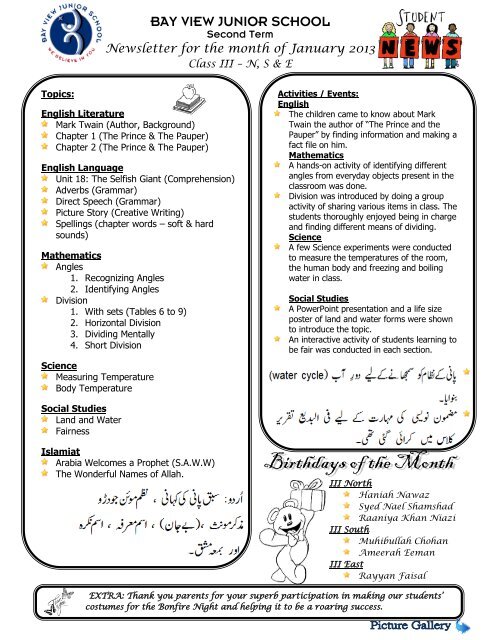 BAY VIEW JUNIOR SCHOOL
WE BELIEVE IN YOU
BAY VIEW JUNIOR SCHOOL
Second Term
Newsletter for the month of January 2013
Class III – N, S & E
STUDENT
NEWS
Topics:
English Literature
Mark Twain (Author, Background)
Chapter 1 (The Prince & The Pauper)
Chapter 2 (The Prince & The Pauper)
English Language
Unit 18: The Selfish Giant (Comprehension)
Adverbs (Grammar)
Direct Speech (Grammar)
Picture Story (Creative Writing)
Spellings (chapter words – soft & hard
sounds)
Mathematics
Angles
1. Recognizing Angles
2. Identifying Angles
Division
1. With sets (Tables 6 to 9)
2. Horizontal Division
3. Dividing Mentally
4. Short Division
Science
Measuring Temperature
Body Temperature
Social Studies
Land and Water
Fairness
Islamiat
Arabia Welcomes a Prophet (S.A.W.W)
The Wonderful Names of Allah.
اُردو: سبق پانی کی کہانی ، نظم موئن جودڑو
مذکر مونث ،(بے جان) ، اسم معرفہ ، اسم نکرہ
اور بمعہ مشق۔
Activities / Events:
English
The children came to know about Mark
Twain the author of “The Prince and the
Pauper” by finding information and making a
fact file on him.
Mathematics
A hands-on activity of identifying different
angles from everyday objects present in the
classroom was done.
Division was introduced by doing a group
activity of sharing various items in class. The
students thoroughly enjoyed being in charge
and finding different means of dividing.
Science
A few Science experiments were conducted
to measure the temperatures of the room,
the human body and freezing and boiling
water in class.
Social Studies
A PowerPoint presentation and a life size
poster of land and water forms were shown
to introduce the topic.
An interactive activity of students learning to
be fair was conducted in each section.
پانی کے نظام کو سمجھانے کے لیے دورِ آب (water cycle)
بنوایا۔
مضمون نویسی کی مہارت کے لیے فی البدیع تقریر
کلاس میں کرائی گئی تھی۔
Birthdays of the Month
III North
Haniah Nawaz
Syed Nael Shamshad
Raaniya Khan Niazi
III South
Muhibullah Chohan
Ameerah Eeman
III East
Rayyan Faisal
EXTRA: Thank you parents for your superb participation in making our students’
costumes for the Bonfire Night and helping it to be a roaring success.
Picture Gallery